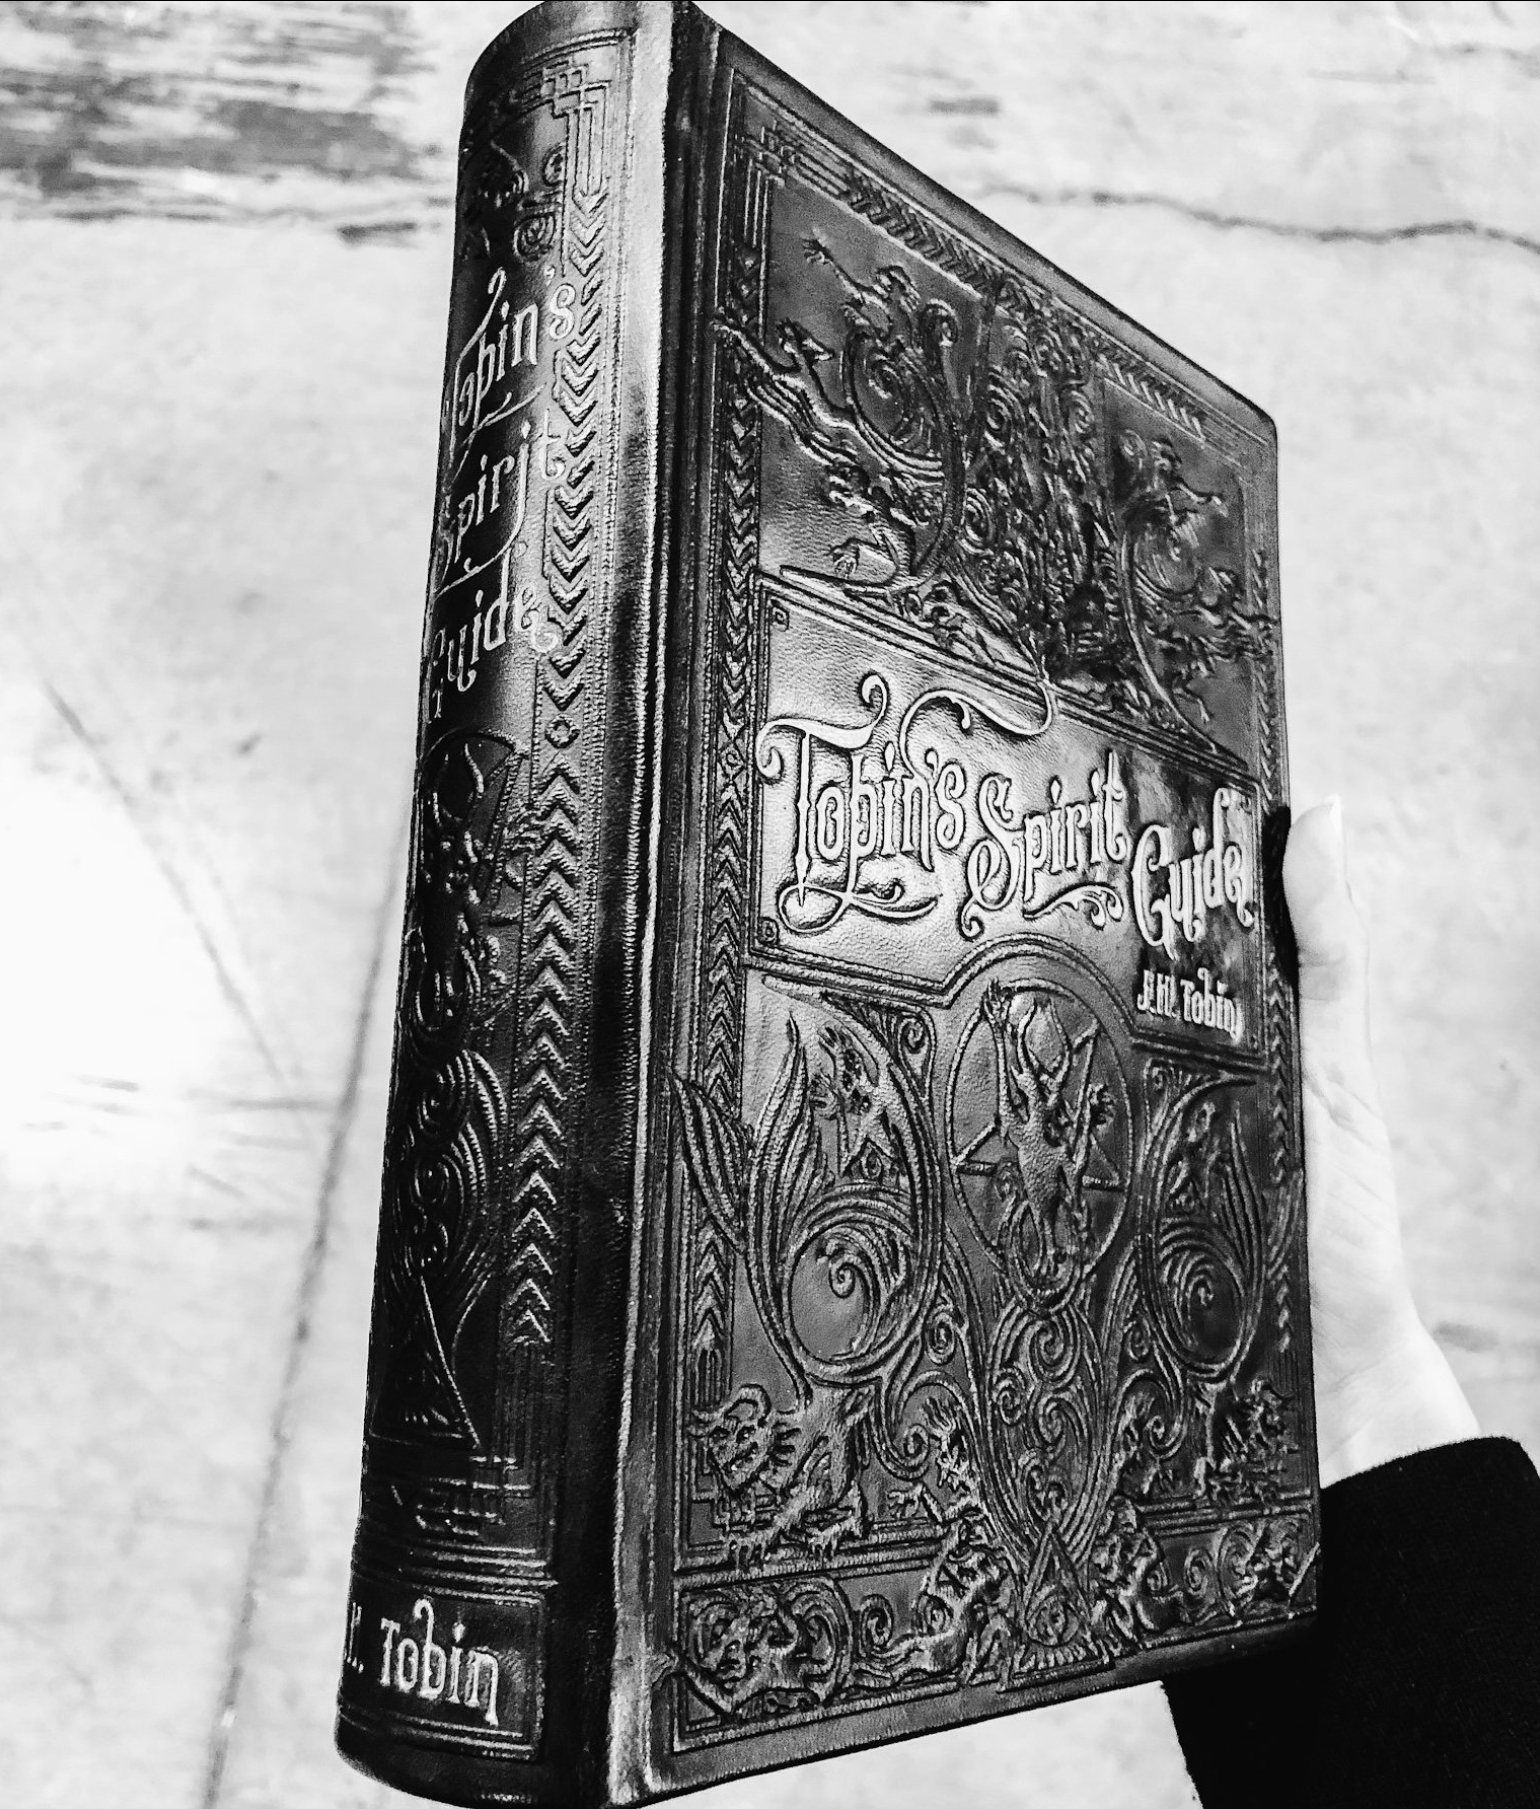 Tobin's
Spirit
Guide
H. Tobin
Tobin's Spirit Guide
J.H. Tobin